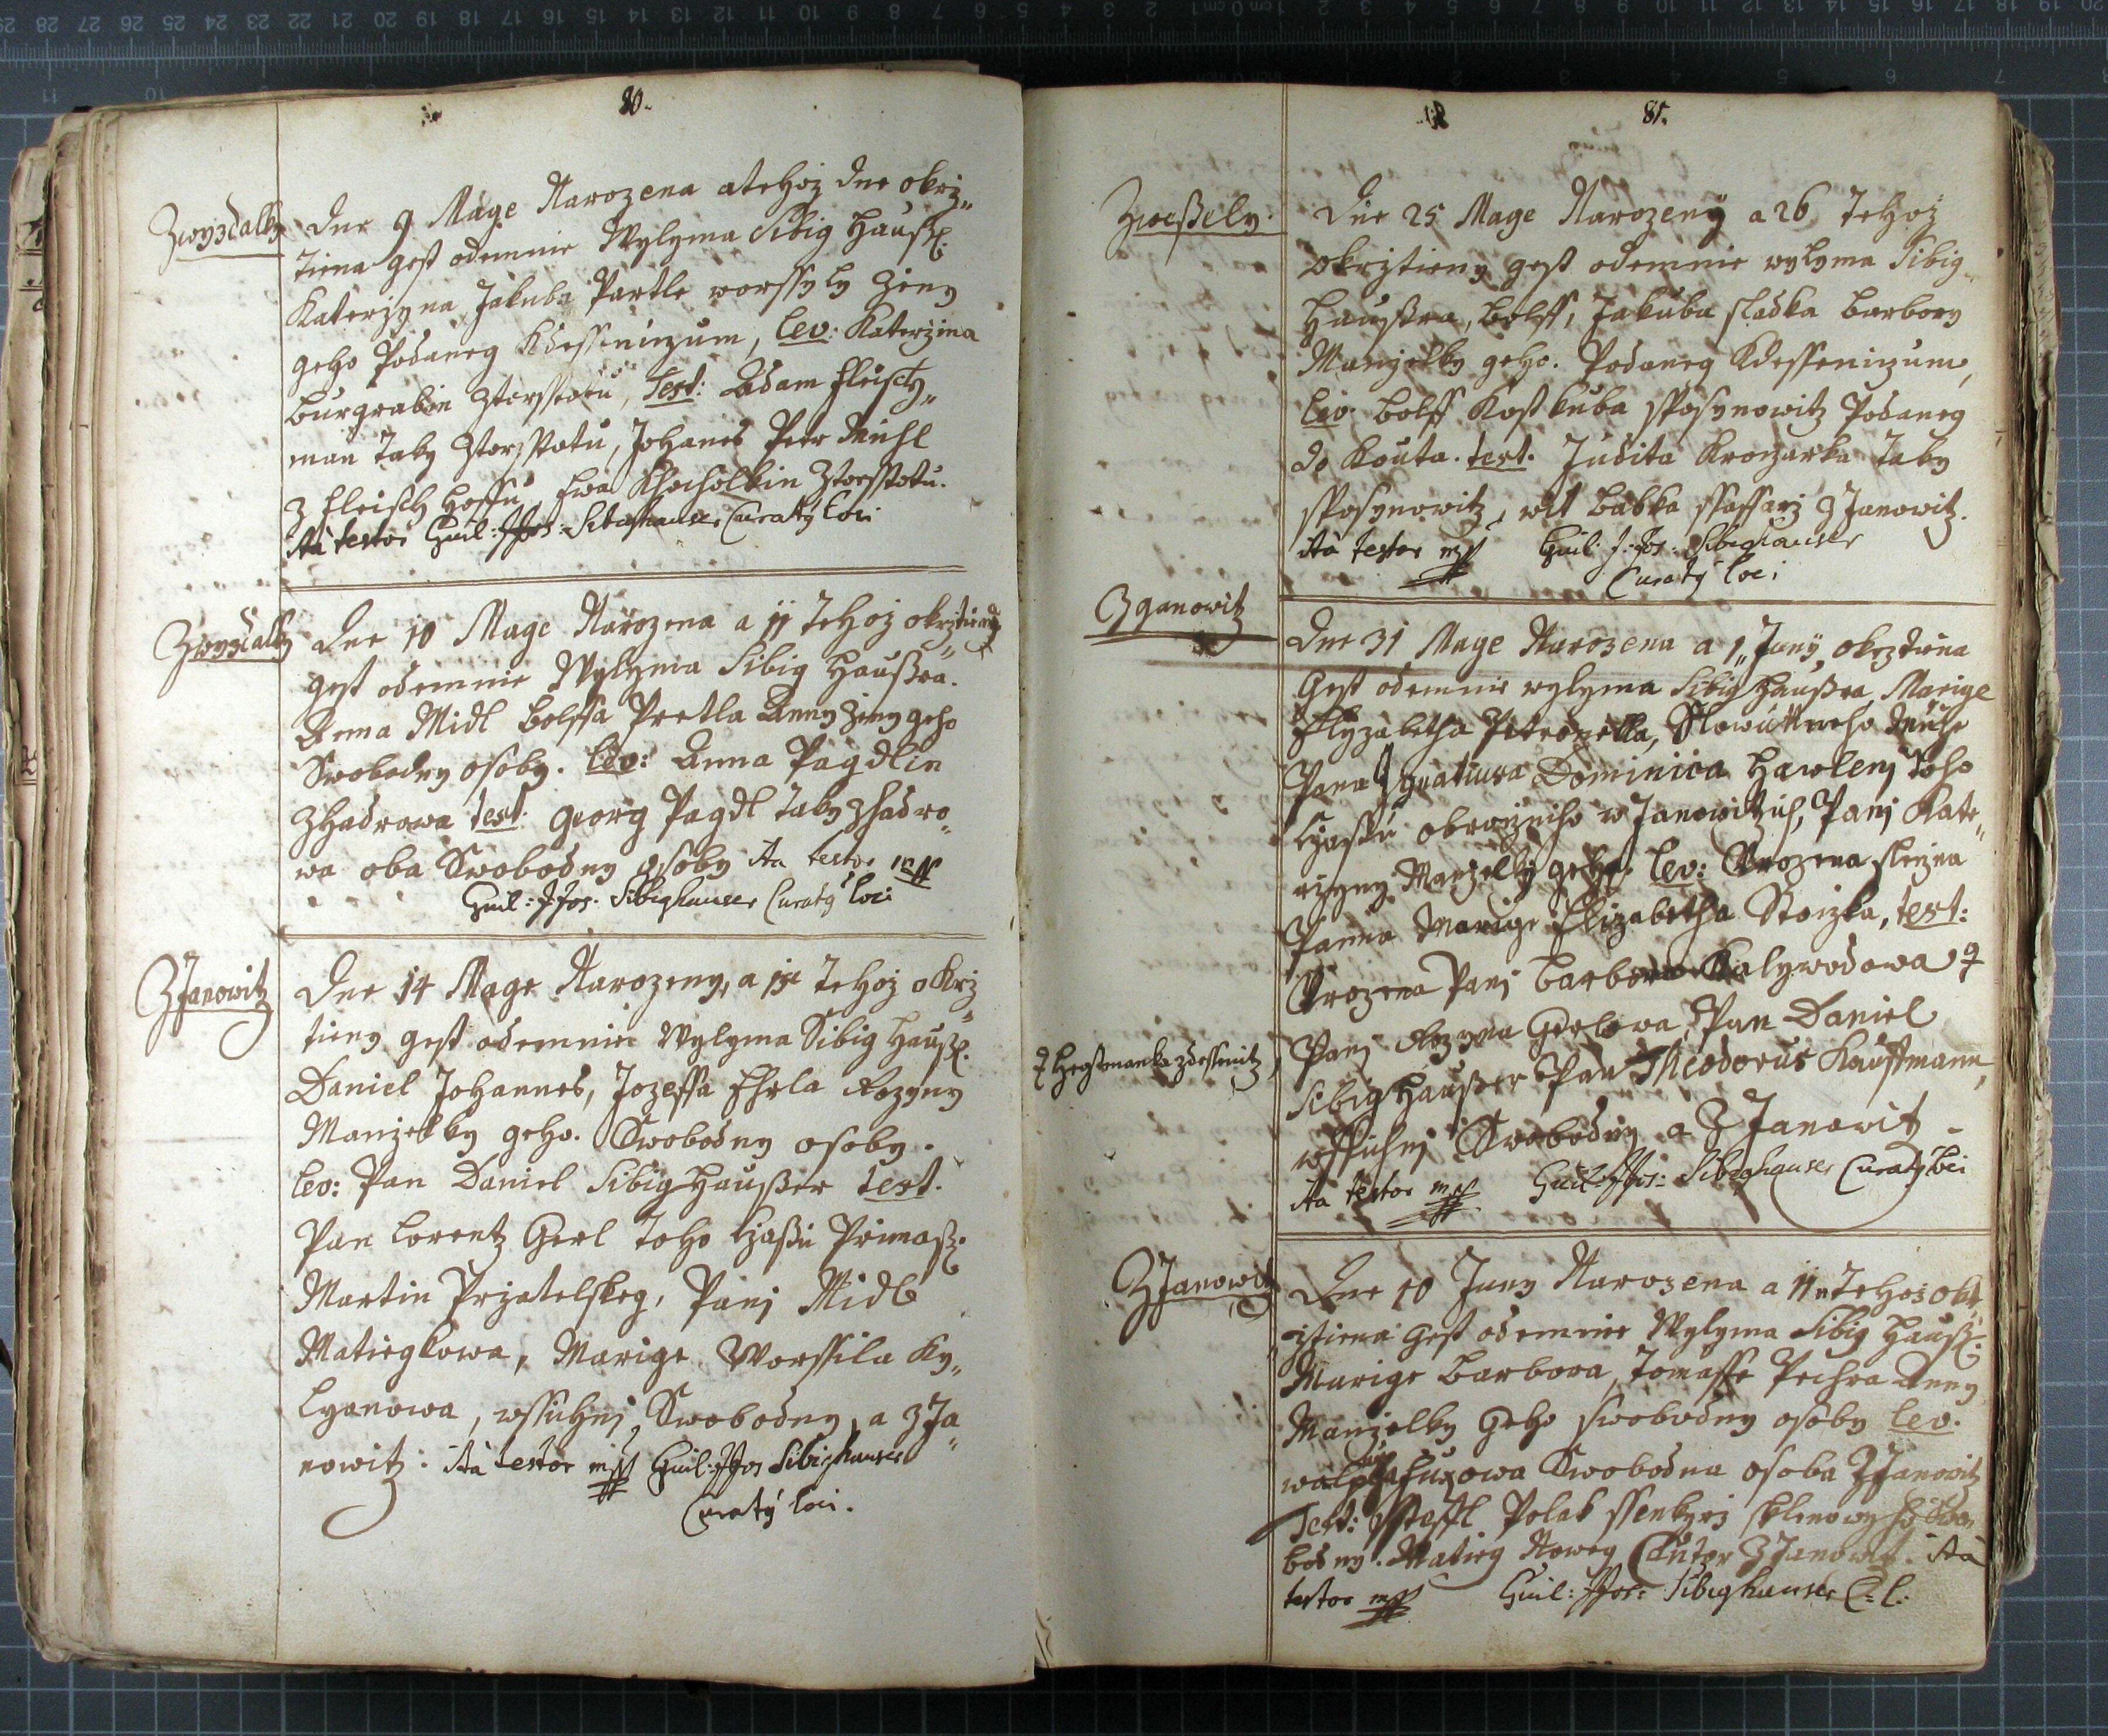 80.
Zwyzdalky
Dne 9 Mage Narozena atehoz dne okrz„
tiena gest odemnie Wylyma Sibig Hauß.
Katerzyna Jakuba Partle worssyly Zieny
geho Podaneg Kdessenizum, Lev: Katerzina
Burgrabin, Test: Adam Fleisch„
man Taky, Johanes Peer Mühl
z Fleisch Hoffu, Ewa
Ita testor Guil: Jos: Sibighauser Curatq Loci
Zwyzdalky
Dne 10 Mage Narozena a 11 Tehoz okrztiena
gest odemnie Wylyma Sibig Haußra.
Anna Midl Bolffa Pretla Anny Zieny geho
Swobodny osoby. Lev: Anna Pagdlin
ZHadrowa test. Georg Pagdl taky zhadro„
wa oba Swobodny osoby Ita testor mpp
Guil: J Jos. Sibighauser Curatq Loci
ZJanowitz
Dne 14 Mage Narozeny, a Tehoz okrz„
tieny gest odemnie Wylyma Sibig Hauß.
Daniel Johannes, Jozeffa Ehrla Rozyny
Manzelky geho. Swobodny osoby.
Lev: Pan Daniel Sibig Haußer test.
Pan Lorentz Gerl Toho Czaßu Primaß.
Martin Przatelskeg, Panj Midl
Matiegkowa, Marige Worssila Ky„
lyanowa, wssichnj Swobodny, a z Ja„
nowitz: Ita testor mpp Guil: J Jos Sibighauser
Curatq Loci.
81.
Zweßely.
Dne 25 Mage Narozeny a 26 Tehoz
Okrztieny gest odemnie wylyma Sibig„
Haußra, Bolff, Jakuba sladka Barbory
Manzelky geho. Podaneg Kdessenizum,
Lev. Bolff Koßkuba sposynowitz Podaneg
do Kouta. test. Judita Kroczarka Taky
sposynowitz, wit Babka ssaffarz z Janowitz.
Ita testor mpp Guil: J: Jos: Sibighauser
Curatq Loci
Zganowitz
Dne 31 Mage Narozena a 1„ Juny, okrztiena
Gest odemnie wylyma Sibig Haußra, Marige
Elyzabetha Petronella, Slowutneho Muže
Pana Ignatiusa Dominica Hawlenj Toho
Czassu obroczniho w Janowitzich, Panj Kate„
rzyny Manzelky geho. Lev: Urozena slerzna
Panna Marige Elizabetha Stoizka, test:
Urozena Panj Barbora Kalywodowa
Panj Rozyna Gerlowa, Pan Daniel
Sibig Haußer Pan Theodorus Kauffmann,
wssichnj Swobodny a Z Janowit
Ita testor mpp Guil: J Jos: Sibighauser Curatq Loci
Hegtmanka zdessenitz
ZJanowitz
Dne 10 Juny Narozena a 11 Tehoz okr„
ztiena Gest odemnie Wylyma Sibig Hauß:
Marige Barbora, Tomasse Pechra Anny
Manzelky Geho swobodny osoby Lev.
Swobodna osoba ZJanowitz
Test: Polak ssenkyrz Swo„
bodny. Matieg Noweg Cantor ZJanowit. Ita
testor mpp Guil: J Jos: Sibighauser C: L: